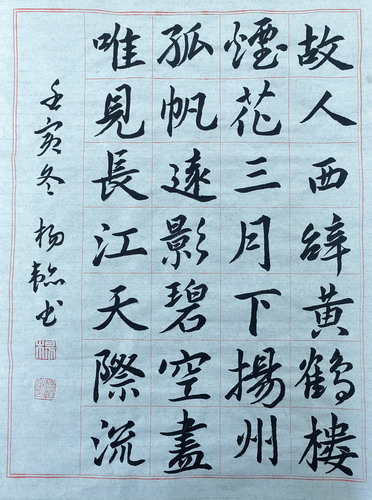 故人西辞黄鶴樓
煙花三月下揚州
孤帆遠影碧空盡
唯見長江天際流
壬寅冬 杨
书